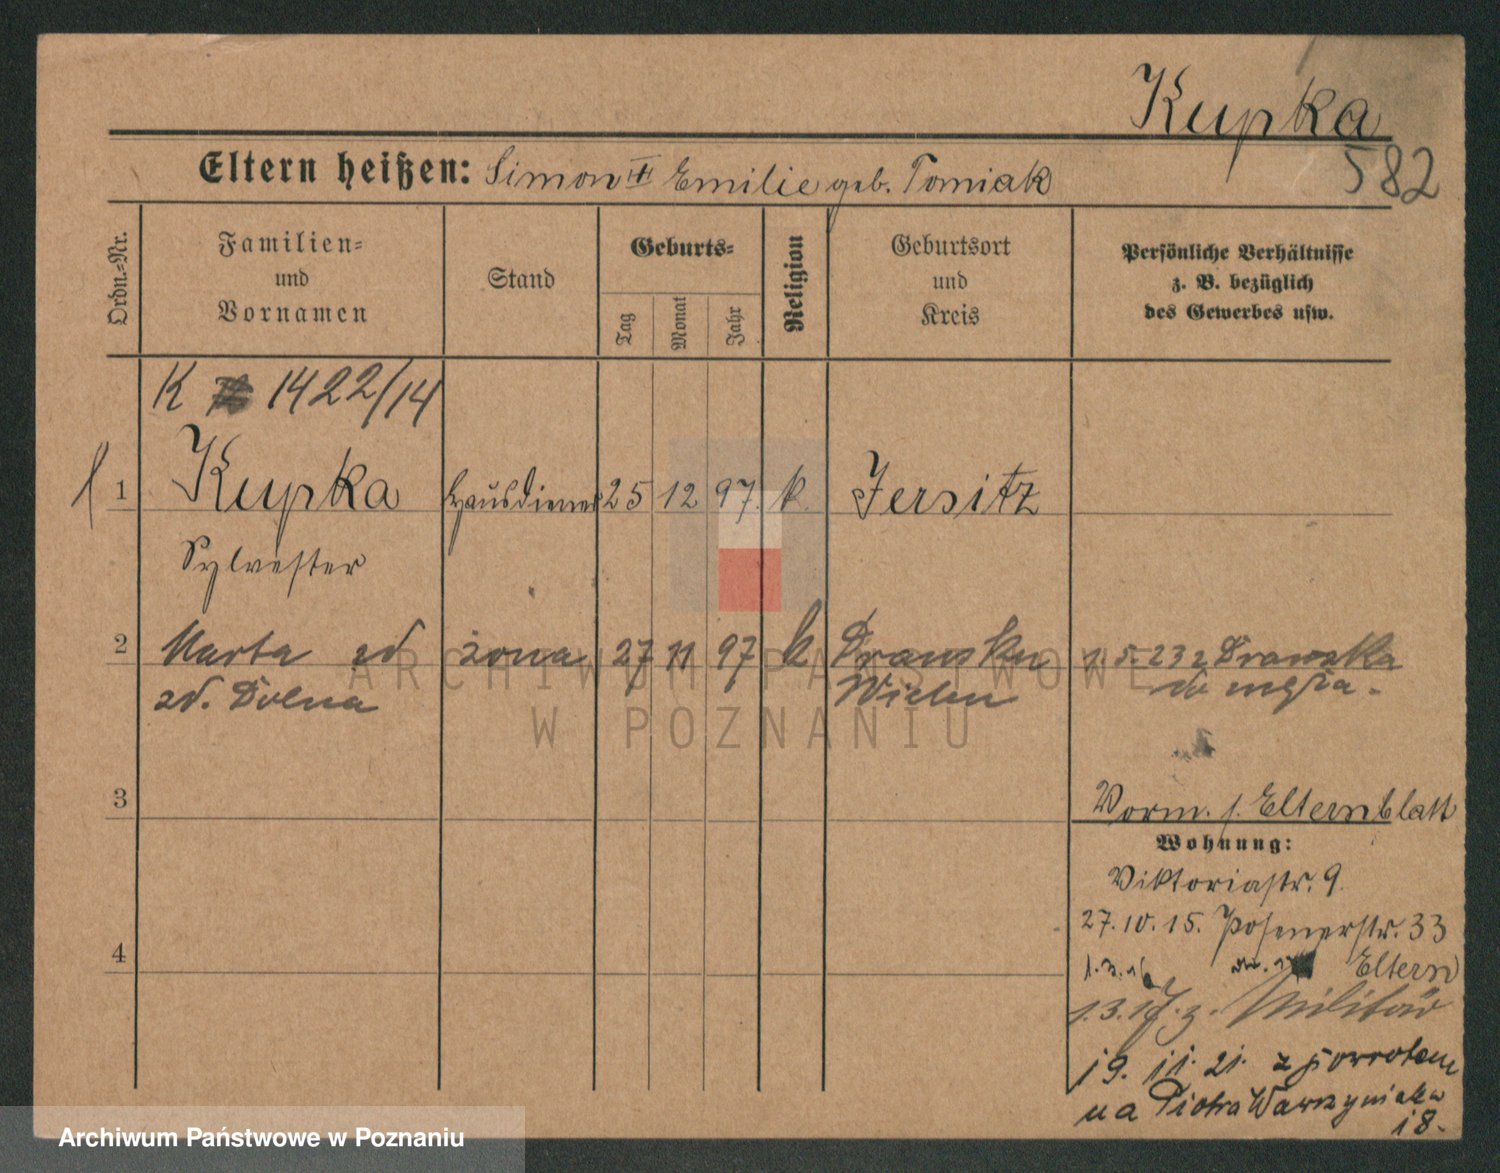 Kupka
582
Eltern heißen: Simon Emilie geb. Tomiak
Ordn.=Nr.
Familien=
und
Vornamen
Stand
Geburts=
Tag
Monat
Jahr
Religion
Geburtsort
und
Kreis
Persönliche Verhältnisse
z. B. bezüglich
des Gewerbes usw.
K 1422/14
1 Kupka Hausdiener 25 12 97. k. Jersitz
Sylvester
2 Marta zd żona 27 11 97 k Drawsko 1.5.23 z Drawska
zd. Dolna Wieleń do męża.
3
Vorm. s. Elternblatt
Wohnung:
Viktoriastr. 9.
27.10.15. Posenerstr. 33
4
1.3.16 Eltern
1.3.17. z. Militär
19. 11. 21. z powrotem
na Piotra Wawrzyniaka
18.
ARCHIWUM PAŃSTWOWE
W POZNANIU
Archiwum Państwowe w Poznaniu